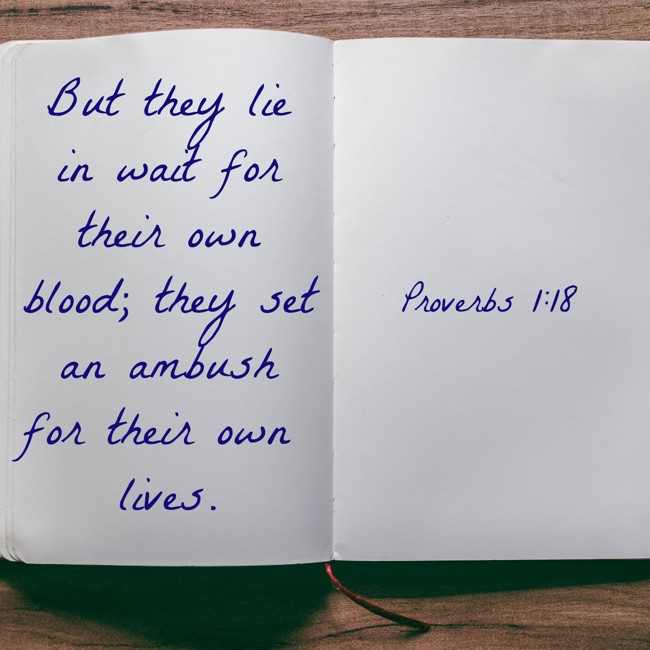 But they lie
in wait for
their own
blood; they set
an ambush
for their own
lives.
Proverbs 1:18